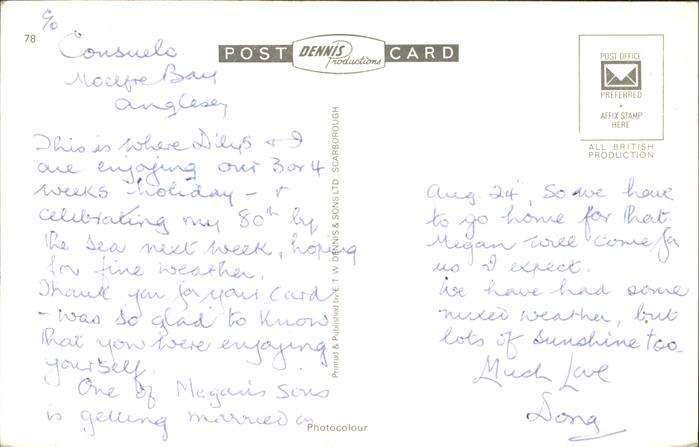 c/o
78
Consuelo
Moelfre Bay
Anglesey
POST DENNIS Productions CARD
POST OFFICE
PREFERRED
AFFIX STAMP
HERE
ALL BRITISH
PRODUCTION
This is where Dilys & I
are enjoying our 3 or 4
weeks holiday - &
celebrating my 80th by
the sea next week, hoping
for fine weather.
Thank you for your card
- was so glad to know
that you were enjoying
yourself.
One of Megan's sons
is getting married on
Printed & Published by E. T. W. DENNIS & SONS LTD SCARBOROUGH
Photocolour
Aug 24, so we have
to go home for that
Megan will come for
us I expect.
We have had some
mixed weather, but
lots of sunshine too.
Much Love